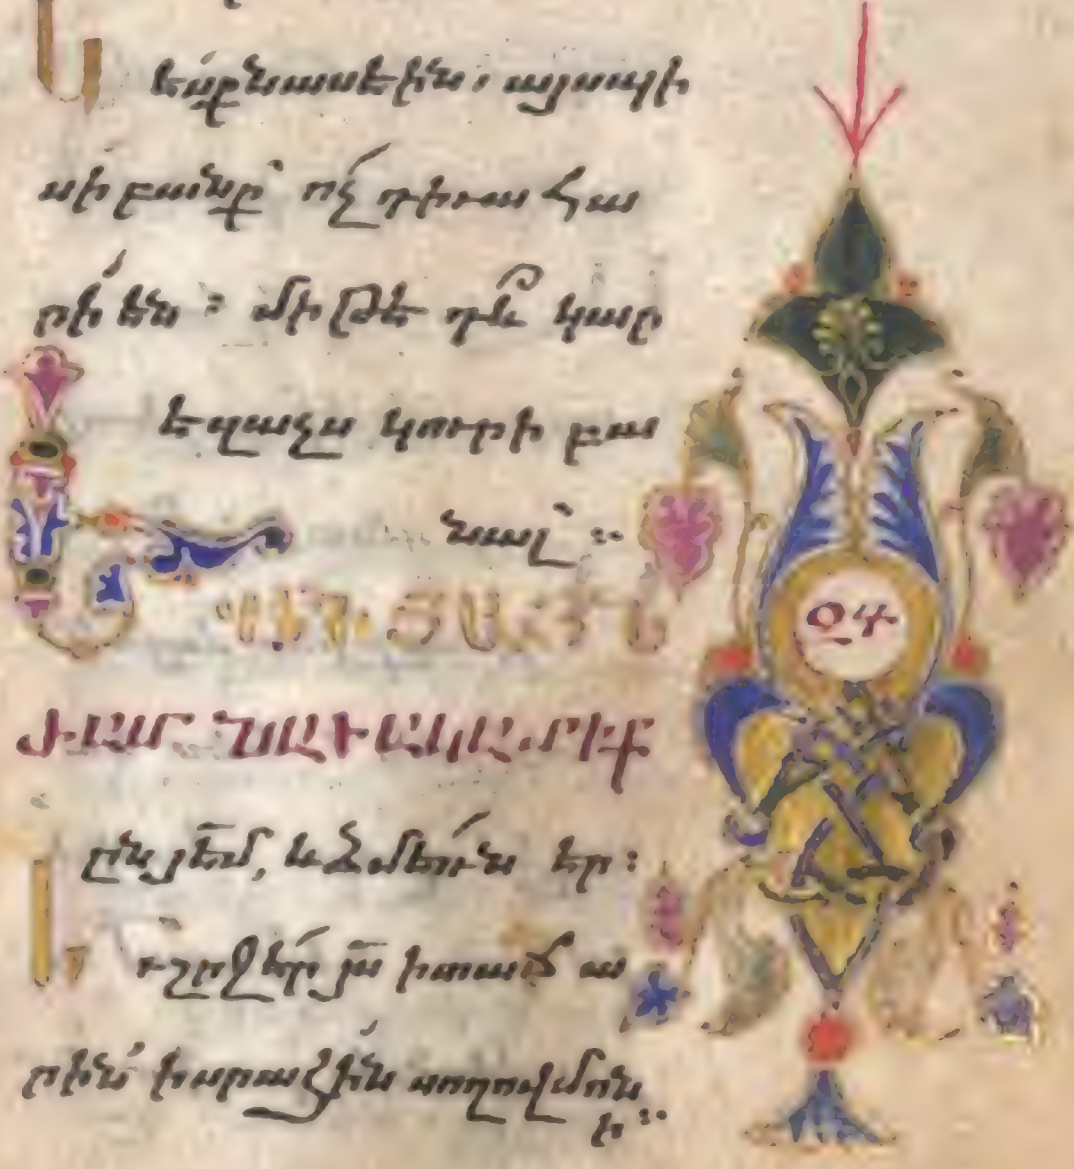 Կէսքն ասէին. այսպի
սի բանք ոչ դիւա հա
րի են : միթէ դև կար
է զաչս կուրի բա
նալ :
Եւ ԷԻՆ ՅԱՅՆ
ԺԱՄ ՆԱՒԱԿԱՏԻՔ
ըն յեմ, և ձմեռն էր :
Եւ շրջէր յս ի տաճա
րին ի սրահին սողոմոն
ի :